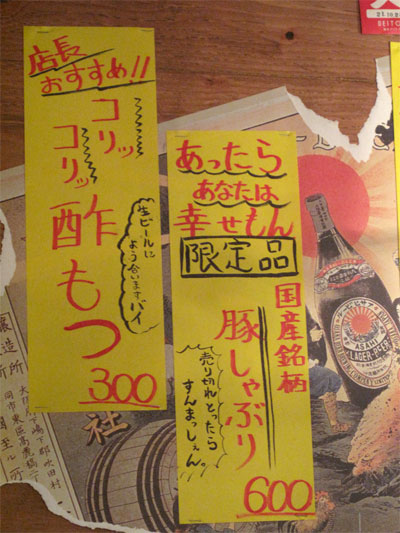 店長
おすすめ!!
コリッ
コリッ
酢もつ
生ビールに
よう合いますバイ
300
あったら
あなたは
幸せもん
限定品
国産銘柄
豚しゃぶり
売り切れとったら
すんまっしぇん。
600
ASAHI
LAGER-BEER
社
醸造所